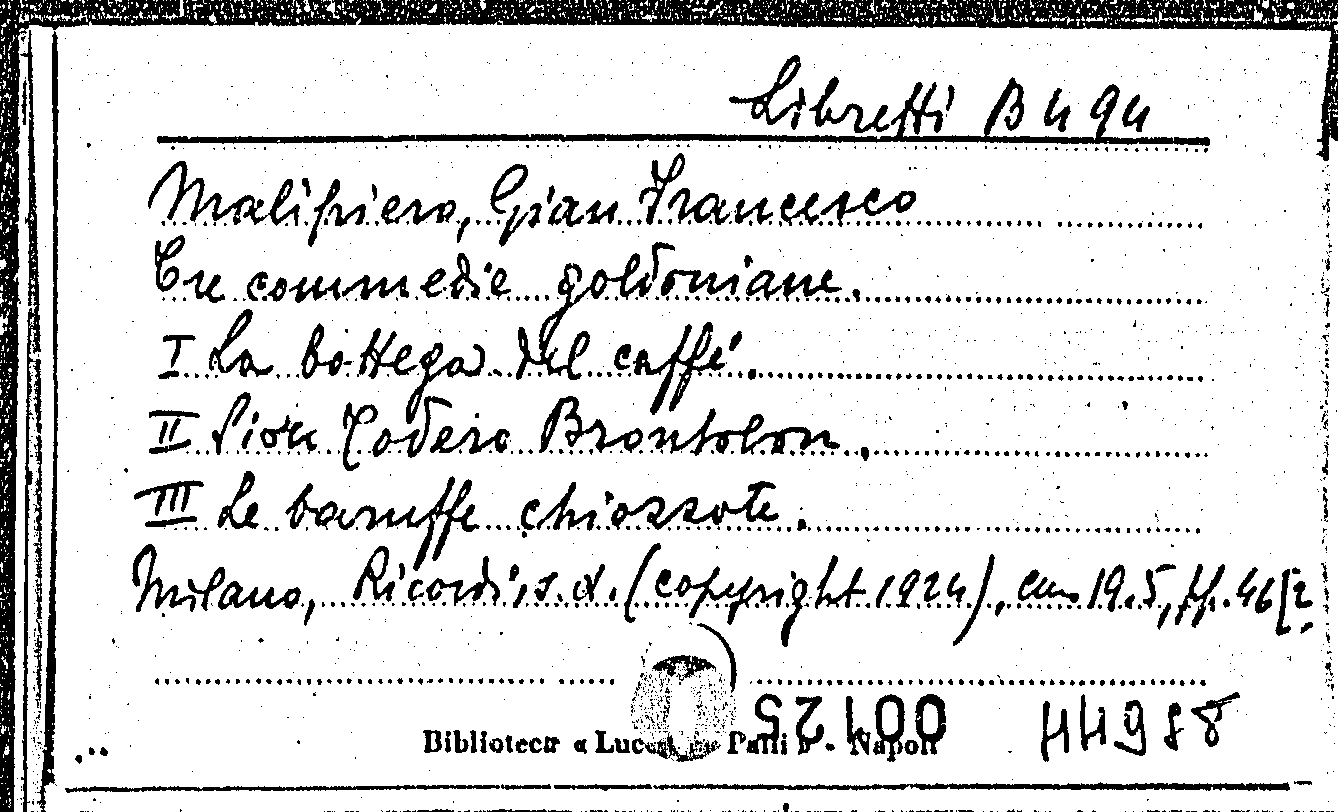 Libretti B 494
Malipiero, Gian Francesco
Tre commedie goldoniane.
I La bottega del caffè.
II Sior Todero Brontolon.
III Le baruffe chiozzote.
Milano, Ricordi, s.d. (copyright 1924), cm. 19.5, pp. 46 [2
00125
Biblioteca « Lucchesi Palli » - Napoli
44988